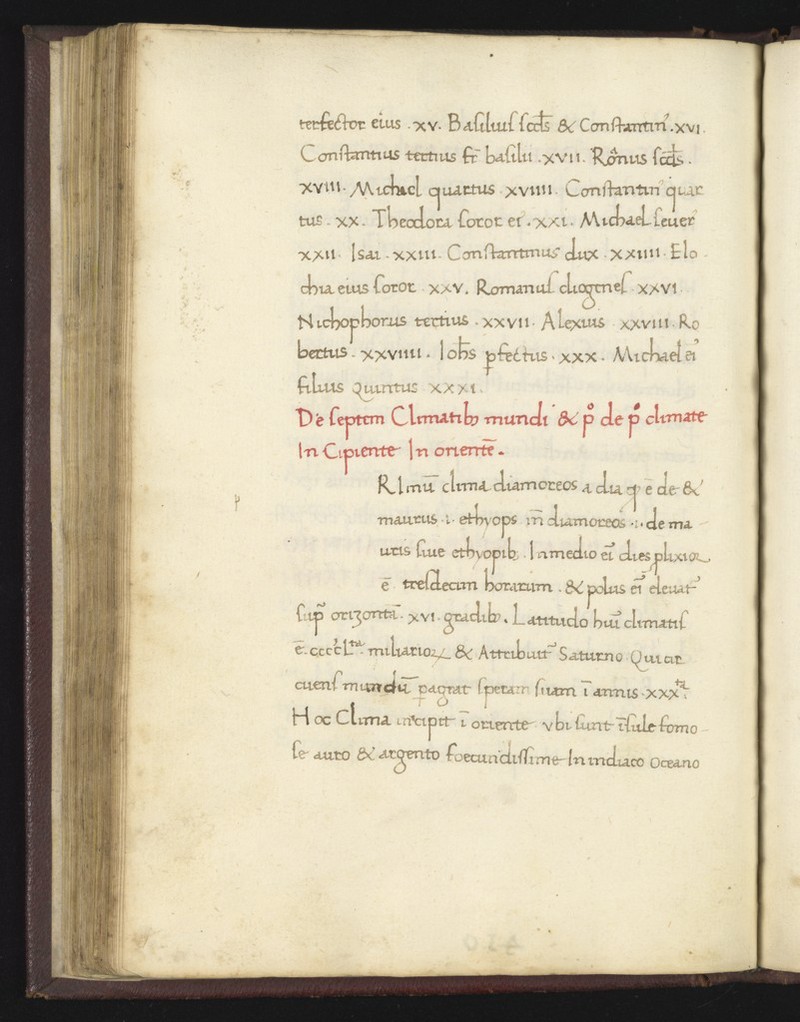 terfector eius .xv. Basilius scd̄s & Constantin᾽ .xvi.
Constantius tertius fr̄ basilii .xvii. Ro̅nus scd̄s.
xviii. Michael quartus .xviiii. Constantin᾽ quar
tus. xx. Theodora soror ei᾽. xxi. Michael seuer᾽
xxii. Isai. xxiii. Constantinus dux .xxiiii. Elo
chia eius soror .xxv. Romanus diogenes .xxvi.
Nichophorus tertius .xxvii. Alexius xxviii. Ro
bertus. xxviiii. Ioh̄s ꝑfectus. xxx. Michael ei᾽
filius Quintus xxxi.
De septem Climatib᾽ mundi & p͛º de p͛º climate
In Cipiente In oriente̅.
p
RImū clima diamoreos a dia ꝙ ē de &
maurus .i. ethyops in̄ diamoreos .i. de ma
uris siue ethyopib᾽. In medio ei᾽ dies ꝓlixioꝝ
ē tresdecim horarum. & polus ei᾽ eleuat᾽
sup̄ orizontā .xvi. gradib᾽. Latitudo hui᾽ climatis
ē. cccc᾽l.ta miliarioꝝ & Attribuit᾽ Saturno Qui cir
cuens mundū ꝑagrat speram suam ī annis .xxx.ta
Hoc Clima incipit ī oriente vbi sunt īsule fomo
se auro & argento foecundissime In indiaco Oceano